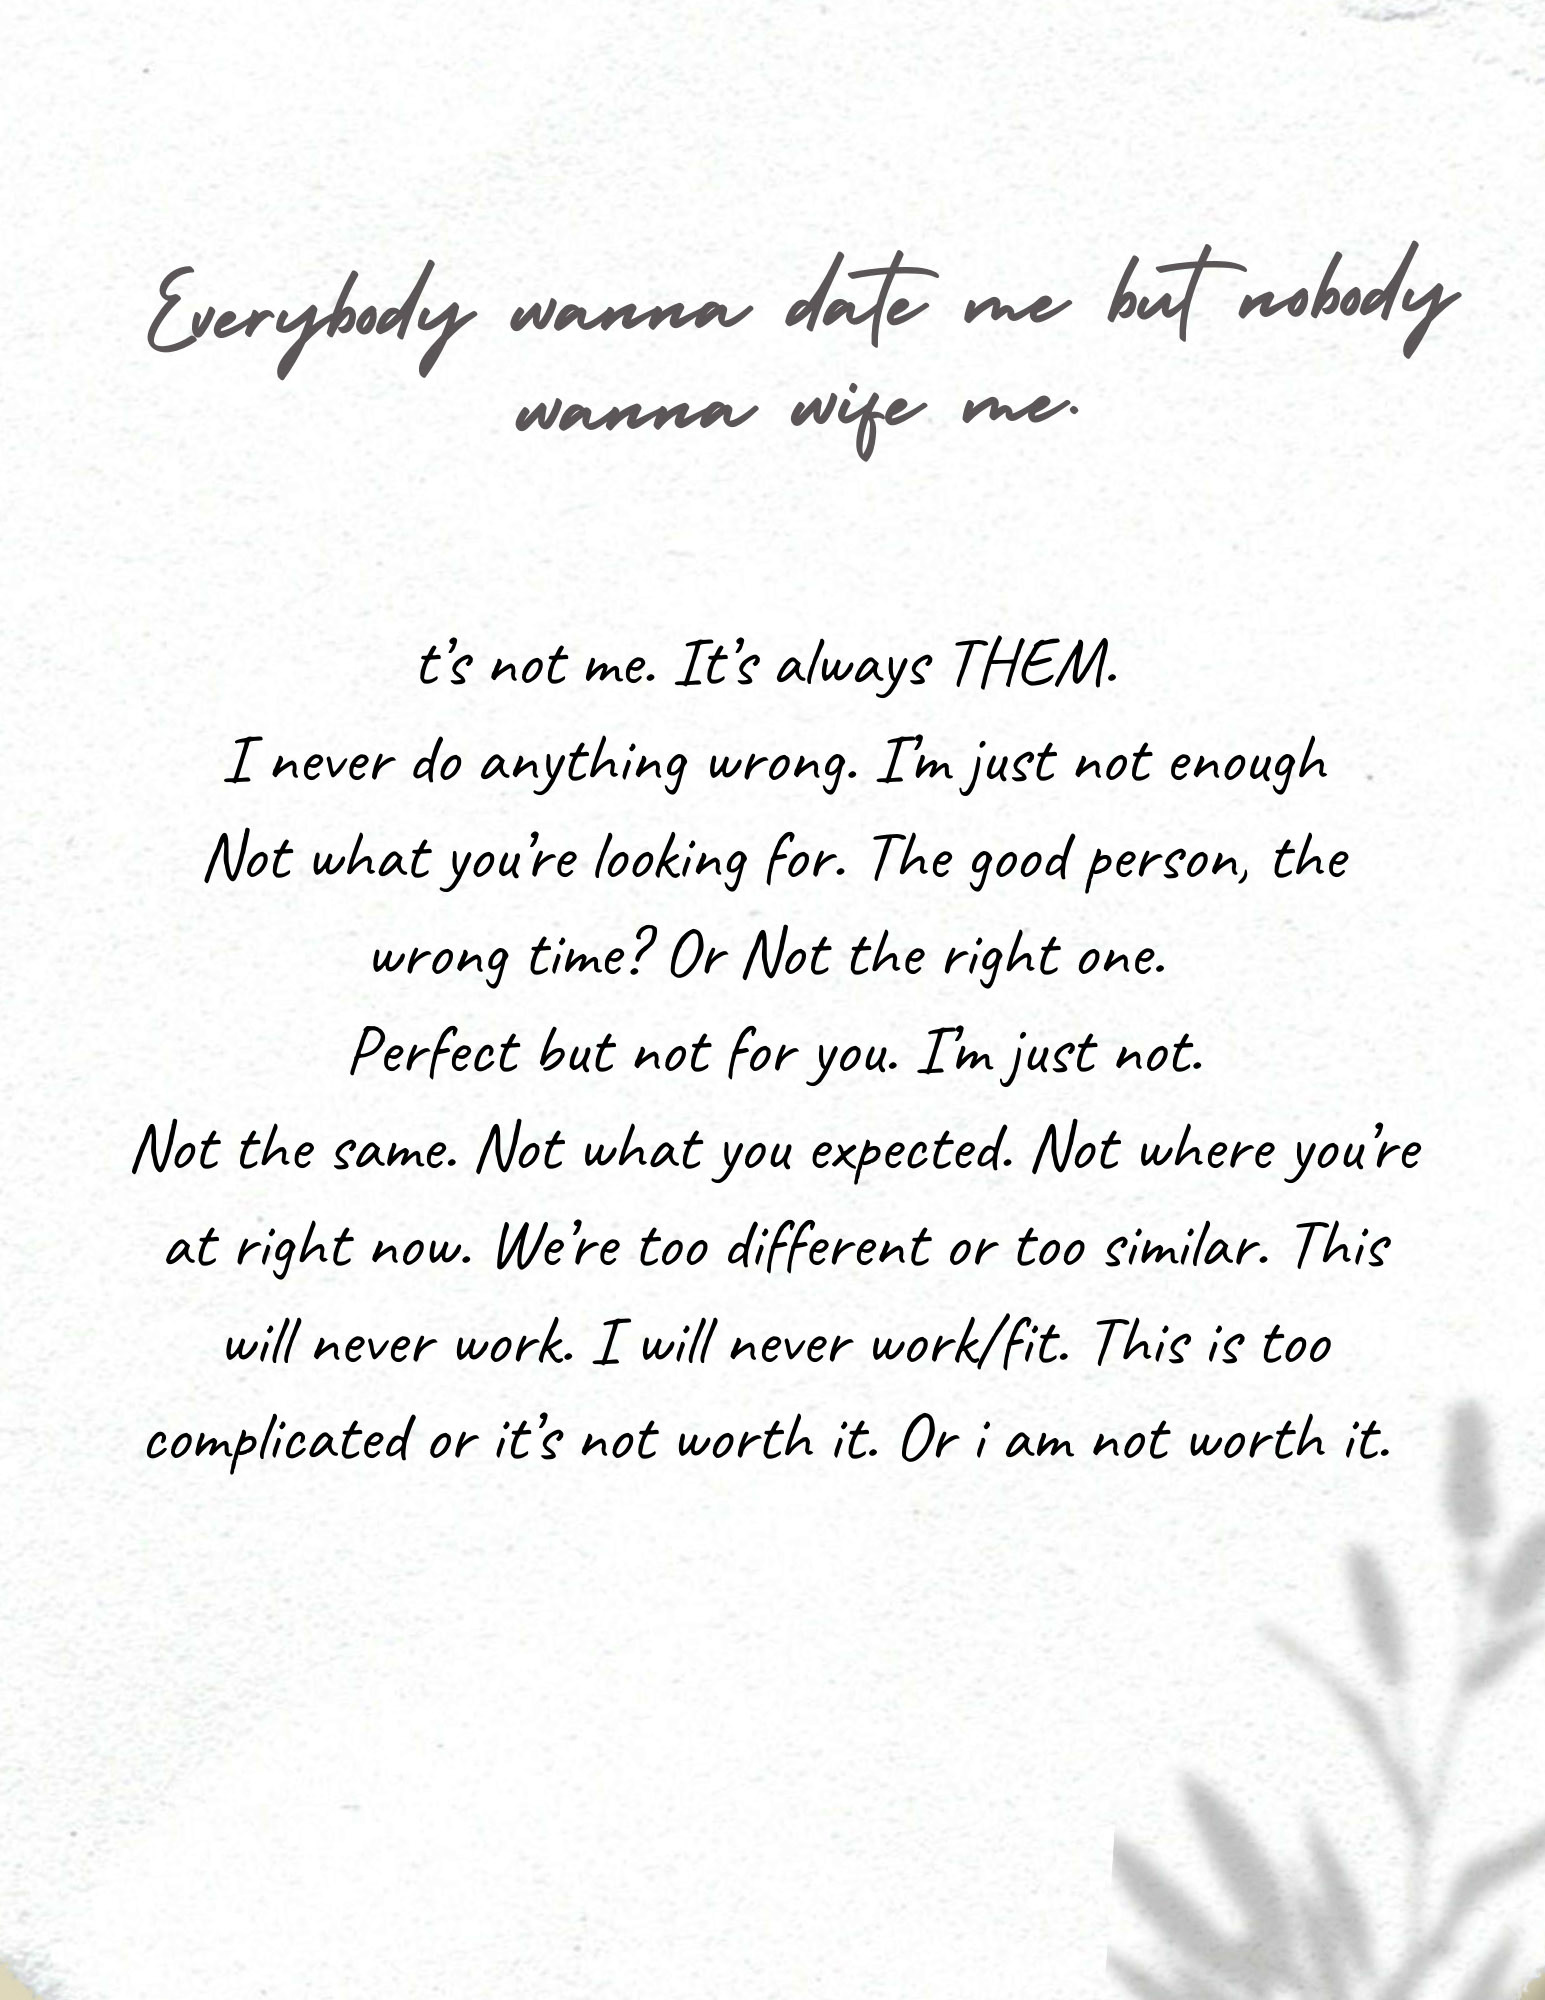 Everybody wanna date me but nobody
wanna wife me.
t's not me. It's always THEM.
I never do anything wrong. I'm just not enough
Not what you're looking for. The good person, the
wrong time? Or Not the right one.
Perfect but not for you. I'm just not.
Not the same. Not what you expected. Not where you're
at right now. We're too different or too similar. This
will never work. I will never work/fit. This is too
complicated or it's not worth it. Or i am not worth it.